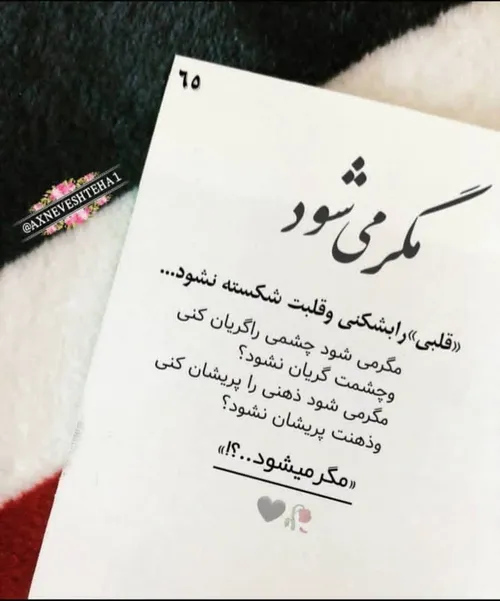 ٦٥
@AXNEVESHTEHA1
مگر می شود
«قلبی» رابشکنی وقلبت شکسته نشود...
مگرمی شود چشمی راگریان کنی
وچشمت گریان نشود؟
مگرمی شود ذهنی را پریشان کنی
وذهنت پریشان نشود؟
«مگر میشود..؟!»